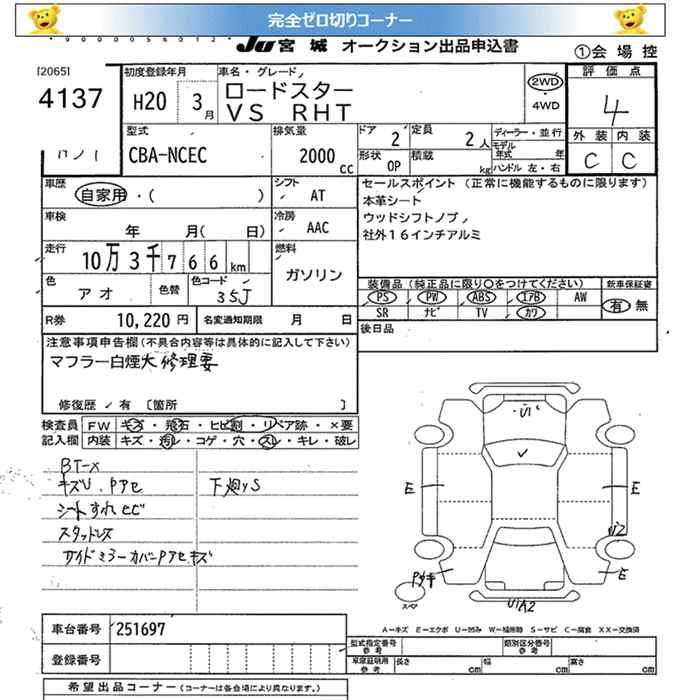 完全ゼロ切りコーナー
JU宮城 オークション出品申込書
①会場控
[2065]
4137
初度登録年月
H20 3月
車名・グレード
ロードスター
VS RHT
2WD
4WD
評価点
4
外装 内装
C C
型式
CBA-NCEC
排気量
2000cc
ドア 2
定員 2人
ディーラー・並行
モデル年式 年
形状 OP
積載 kg
ハンドル 左・右
車歴
自家用・( )
シフト
AT
車検
年 月( 日)
冷房
AAC
走行
10万3千766km
燃料
ガソリン
色
アオ
色替
色コード
35J
R券 10,220円
名変通知期限 月 日
セールスポイント(正常に機能するものに限ります)
本革シート
ウッドシフトノブ
社外16インチアルミ
装備品(純正品に限り○をつけてください)
新車保証書
PS PW ABS エアB AW
SR ナビ TV カワ
有 無
後日品
注意事項申告欄(不具合内容等は具体的に記入して下さい)
マフラー白煙大 修理要
修復歴 有 〔箇所 〕
検査員 FW キズ・飛石・ヒビ割・リペア跡・×要
記入欄 内装 キズ・汚レ・コゲ・穴・スレ・キレ・破レ
BT-X
キズU.Pアセ
下廻りS
シートすれヒビ
スタッドレス
サイドミラーカバーPアセキズ
U1
E
E
U2
E
Pサキ
スペア
U1A2
A-キズ E-エクボ U-凹み W-補修跡 S-サビ C-腐食 XX-交換済
車台番号 251697
登録番号
型式指定番号 参考
類別区分番号 参考
車庫証明用 参考
長さ cm
幅 cm
高さ cm
希望出品コーナー(コーナーは各会場により異なります。)